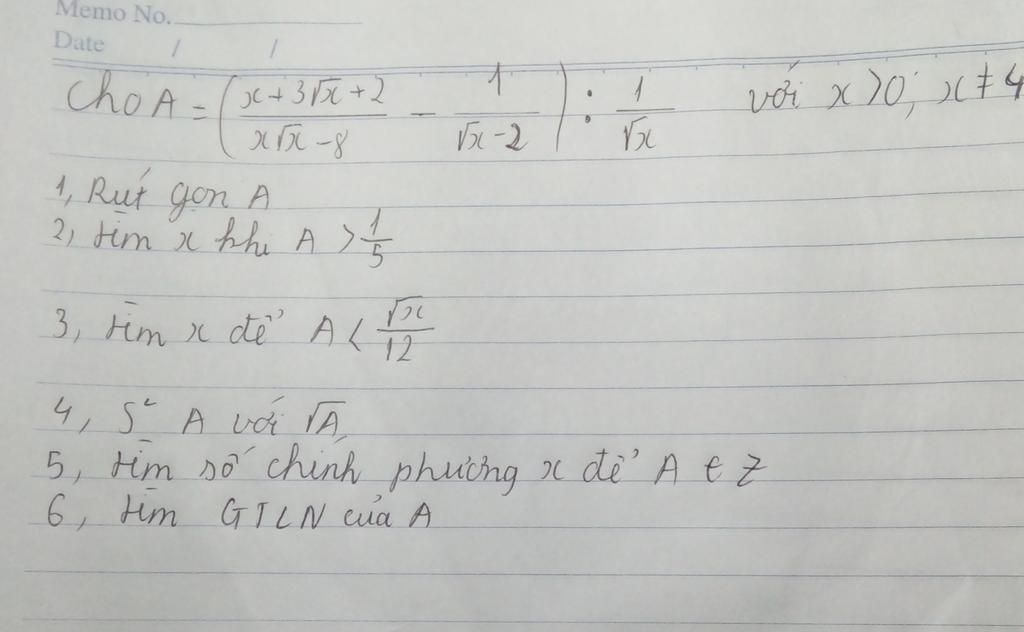 Memo No.
Date / /
Cho A = ( (x + 3√x + 2)/(x√x - 8) - 1/(√x - 2) ) : 1/√x với x > 0; x ≠ 4
1, Rút gọn A
2, tìm x khi A > 1/5
3, tìm x để A < √x/12
4, S² A với √A
5, tìm số chính phương x để A ∈ Z
6, tìm GTLN của A